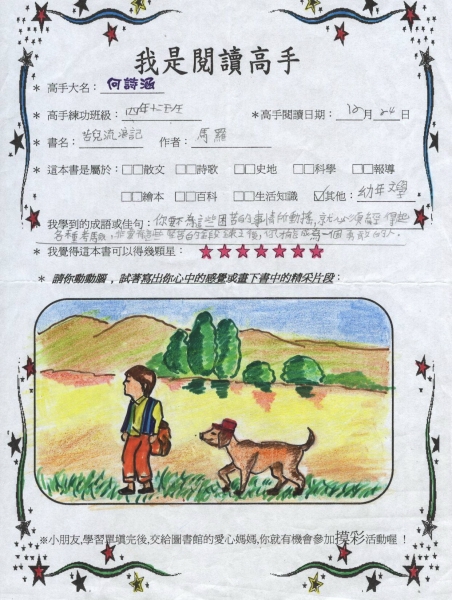 我是閱讀高手
* 高手大名：何詩涵
* 高手練功班級：四年 班 *高手閱讀日期：12月24日
* 書名：苦兒流浪記 作者：馬羅
* 這本書是屬於：□□散文 □□詩歌 □□史地 □□科學 □□報導
□□繪本 □□百科 □□生活知識 ☑其他：幼年文學
我學到的成語或佳句：你 為這些困苦的事情所動搖，就必須
各種考驗， 成為一個勇敢的人。
* 我覺得這本書可以得幾顆星：★★★★★★★
* 請你動動腦，試著寫出你心中的感覺或畫下書中的精采片段：
※小朋友,學習單填完後,交給圖書館的愛心媽媽,你就有機會參加摸彩活動喔！